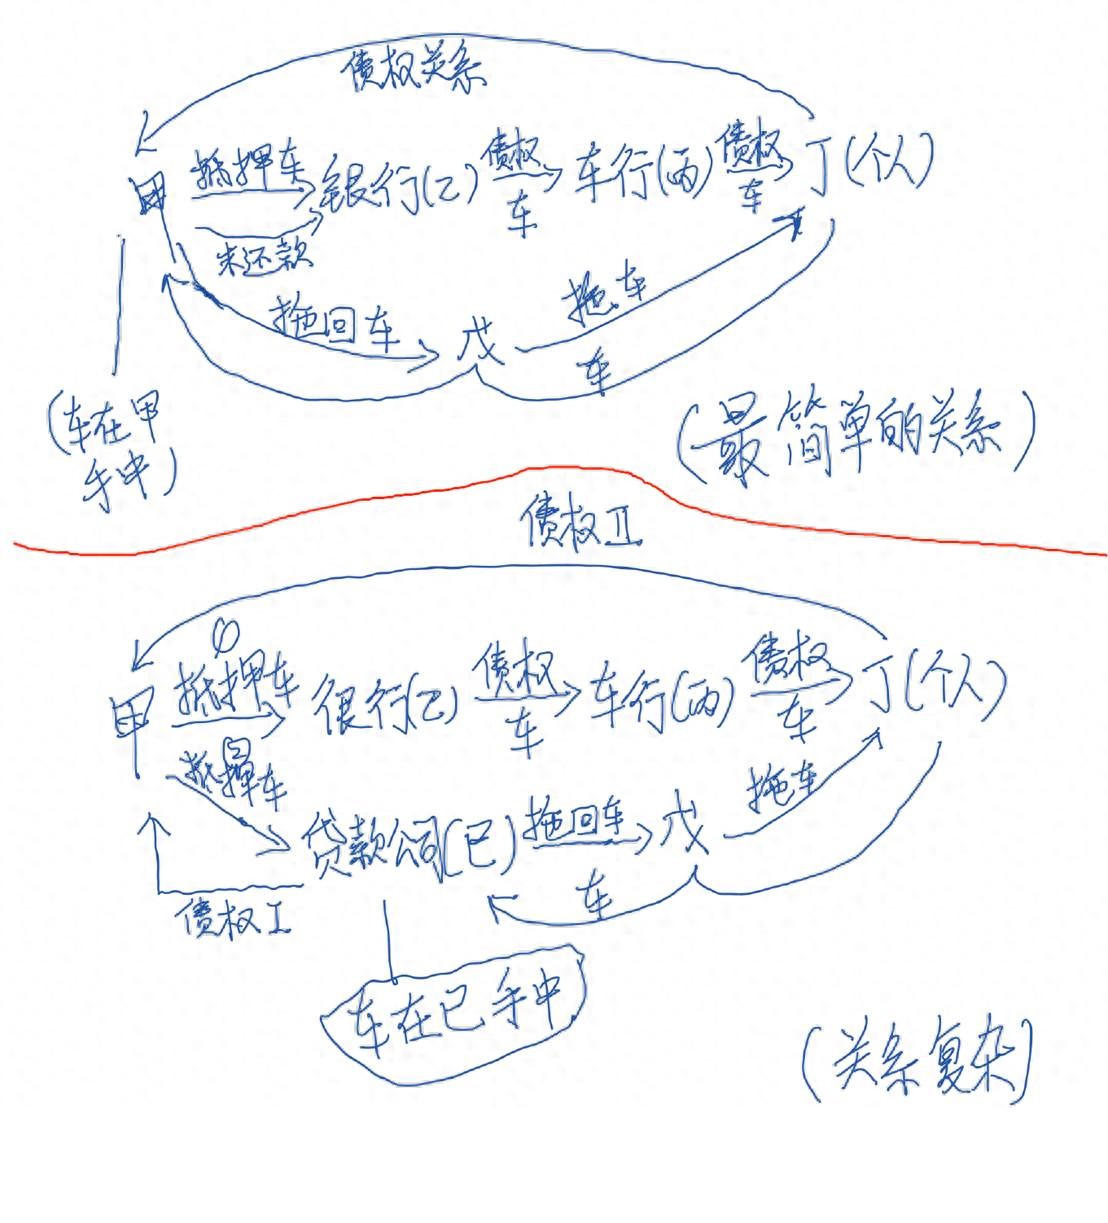 债权关系
甲 抵押车 银行(乙) 债权 车 车行(丙) 债权 车 丁(个人)
未还款
拖回车 戊 拖车
车
(车在甲
手中)
(最简单的关系)
债权Ⅱ
①
甲 抵押车 银行(乙) 债权 车 车行(丙) 债权 车 丁(个人)
②
抵押车
贷款公司(已) 拖回车 戊 拖车
车
债权Ⅰ
车在已手中
(关系复杂)